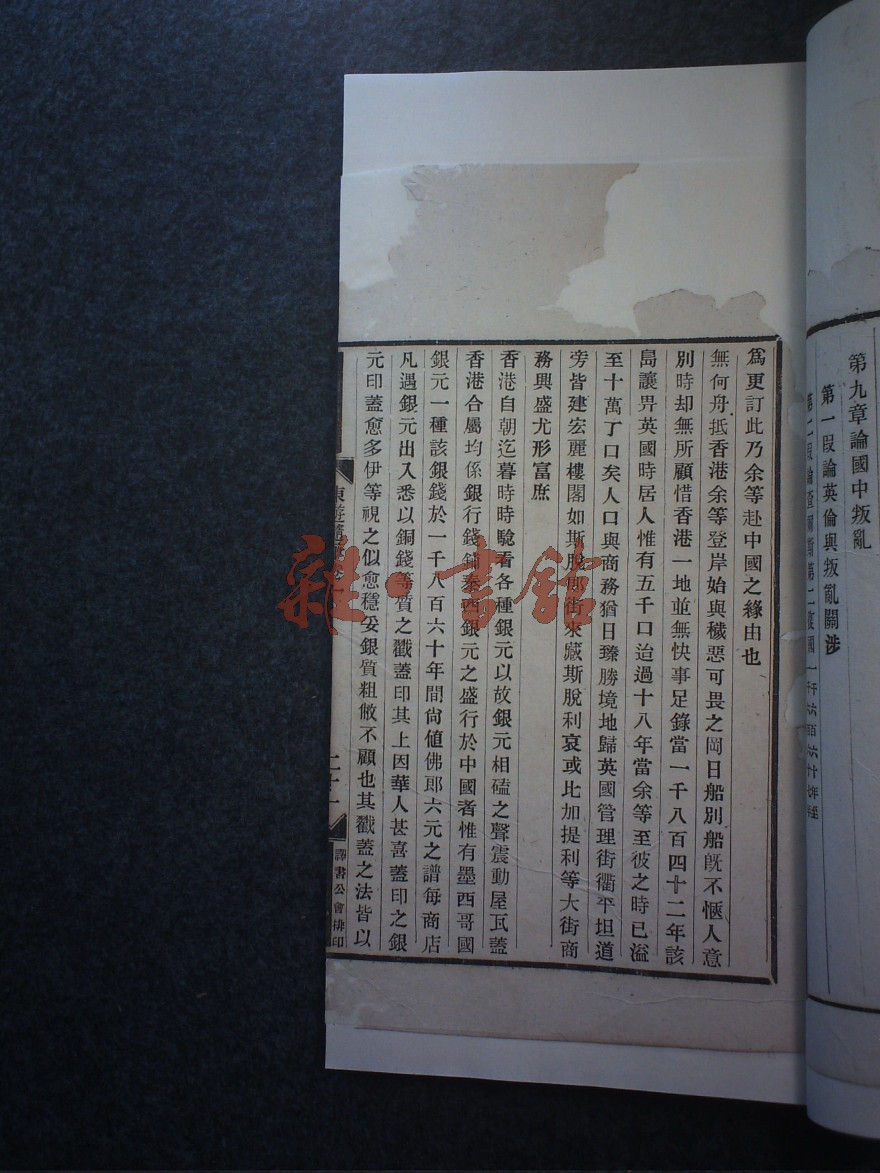 第九章論國中叛亂
第一段論英倫與叛亂關涉
為更訂此乃余等赴中國之緣由也
無何舟抵香港余等登岸始與穢惡可畏之岡日船別船旣不愜人意
別時却無所顧惜香港一地並無快事足錄當一千八百四十二年該
島讓畀英國時居人惟有五千口迨過十八年當余等至彼之時已溢
至十萬丁口矣人口與商務猶日臻勝境地歸英國管理街衢平坦道
旁皆建宏麗樓閣如斯脫郎街來蔵斯脫利哀或比加提利等大街商
務興盛尤形富庶
香港自朝迄暮時時驗看各種銀元以故銀元相磕之聲震動屋瓦蓋
香港合屬均係銀行錢鋪泰西銀元之盛行於中國者惟有墨西哥國
銀元一種該銀錢於一千八百六十年間尙値佛郎六元之譜每商店
凡遇銀元出入悉以銅錢等質之戳蓋印其上因華人甚喜蓋印之銀
元印蓋愈多伊等視之似愈穩妥銀質粗敝不顧也其戳蓋之法皆以
東遊隨
譯書公會排印
雜·書館